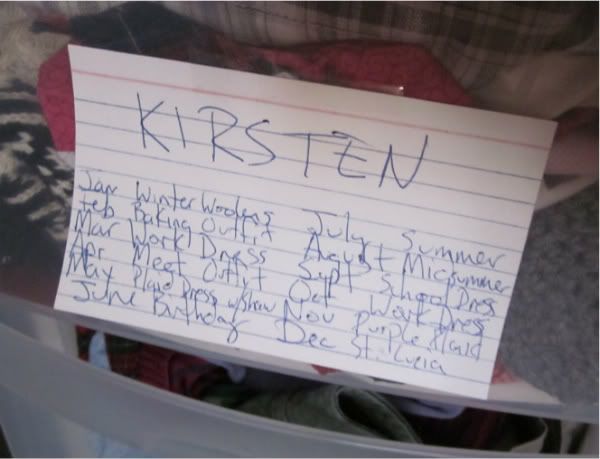 KIRSTEN
Jan Winter Woolens July Summer
Feb Baking Outfit August Midsummer
Mar Work Dress Sept School Dress
Apr Meet Outfit Oct Work Dress
May Plaid Dress w/shawl Nov purple plaid
June Birthday Dec St. Lucia